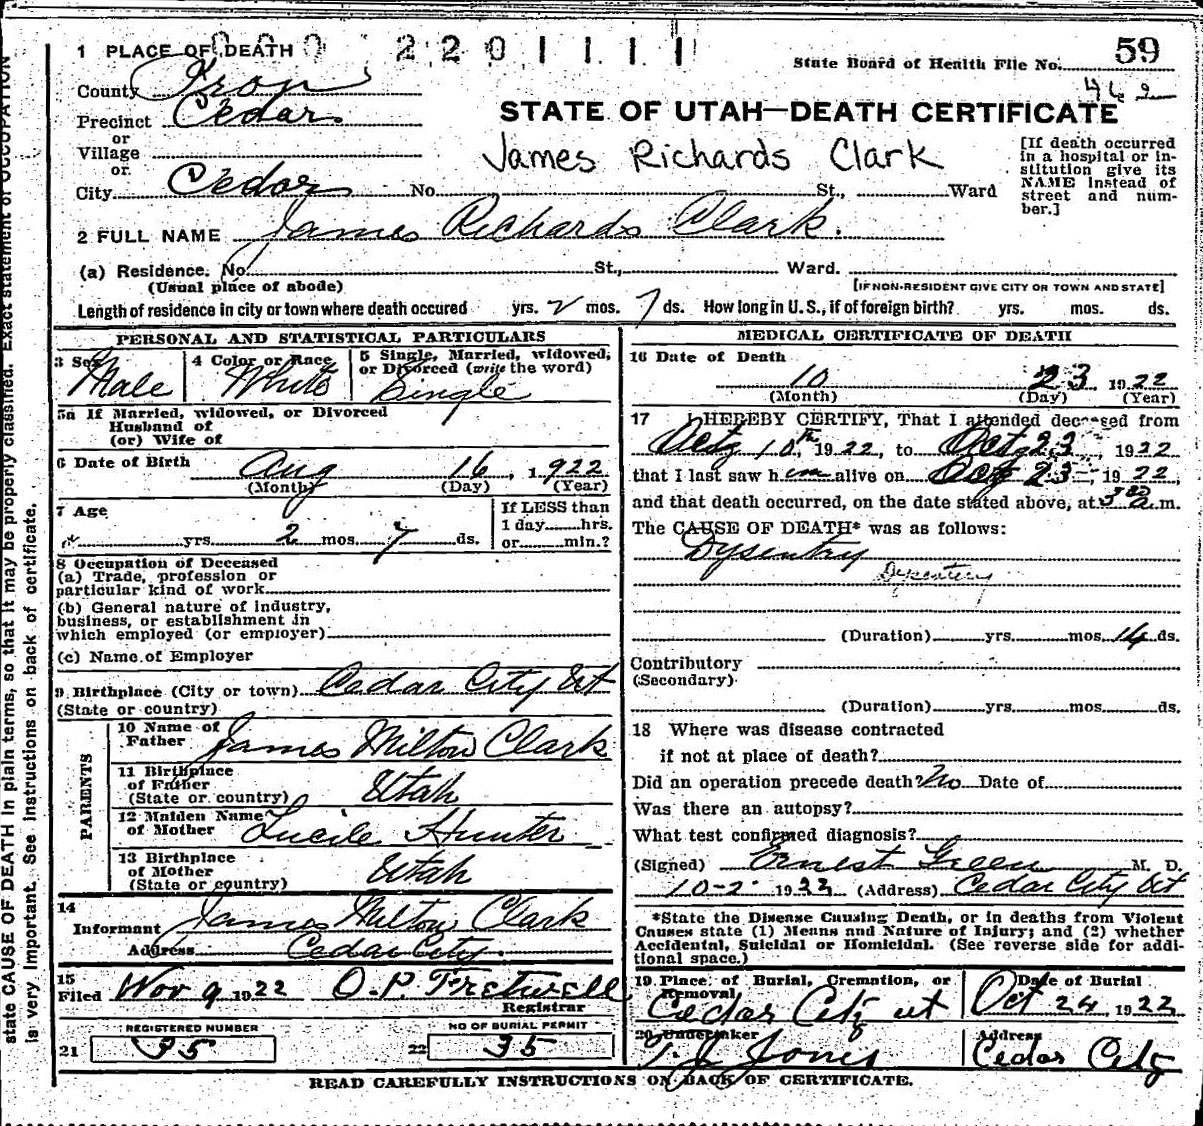 1 PLACE OF DEATH 000 2201111
State Board of Health File No. 59
462
County Iron
Precinct Cedar
or
Village
or
City Cedar No. St., Ward
STATE OF UTAH—DEATH CERTIFICATE
James Richards Clark
[If death occurred
in a hospital or in-
stitution give its
NAME instead of
street and num-
ber.]
2 FULL NAME James Richards Clark.
(a) Residence. No. St., Ward.
(Usual place of abode) [IF NON-RESIDENT GIVE CITY OR TOWN AND STATE]
Length of residence in city or town where death occured yrs. 2 mos. 7 ds. How long in U.S., if of foreign birth? yrs. mos. ds.
PERSONAL AND STATISTICAL PARTICULARS
3 Sex Male
4 Color or Race White
5 Single, Married, widowed,
or Divorced (write the word)
Single
5a If Married, widowed, or Divorced
Husband of
(or) Wife of
6 Date of Birth Aug 16, 1922
(Month) (Day) (Year)
7 Age
yrs. 2 mos. 7 ds.
If LESS than
1 day hrs.
or min.?
8 Occupation of Deceased
(a) Trade, profession or
particular kind of work
(b) General nature of industry,
business, or establishment in
which employed (or employer)
(c) Name of Employer
9 Birthplace (City or town) Cedar City Ut
(State or country)
PARENTS
10 Name of
Father James Milton Clark
11 Birthplace
of Father Utah
(State or country)
12 Maiden Name
of Mother Lucile Hunter
13 Birthplace
of Mother Utah
(State or country)
14
Informant James Milton Clark
Address Cedar City
15
Filed Nov 9 1922 O.P. Fretwell
Registrar
REGISTERED NUMBER
21 35
NO OF BURIAL PERMIT
22 35
MEDICAL CERTIFICATE OF DEATH
16 Date of Death
10 23 1922
(Month) (Day) (Year)
17 I HEREBY CERTIFY, That I attended deceased from
Oct 10th, 1922, to Oct 23, 1922
that I last saw him alive on Oct 23, 1922,
and that death occurred, on the date stated above, at 3 30 a.m.
The CAUSE OF DEATH* was as follows:
Dysentry
Dysentery
(Duration) yrs. mos. 14 ds.
Contributory
(Secondary)
(Duration) yrs. mos. ds.
18 Where was disease contracted
if not at place of death?
Did an operation precede death? No Date of
Was there an autopsy?
What test confirmed diagnosis?
(Signed) Ernest Green M. D.
10-2 1922 (Address) Cedar City Ut
*State the Disease Causing Death, or in deaths from Violent
Causes state (1) Means and Nature of Injury; and (2) whether
Accidental, Suicidal or Homicidal. (See reverse side for addi-
tional space.)
19 Place of Burial, Cremation, or
Removal
Cedar City ut
Date of Burial
Oct 24, 1922
20 Undertaker
T. J. Jones
Address
Cedar City
READ CAREFULLY INSTRUCTIONS ON BACK OF CERTIFICATE.
state CAUSE OF DEATH in plain terms, so that it may be properly classified. Exact statement of OCCUPATION
is very important. See instructions on back of certificate.